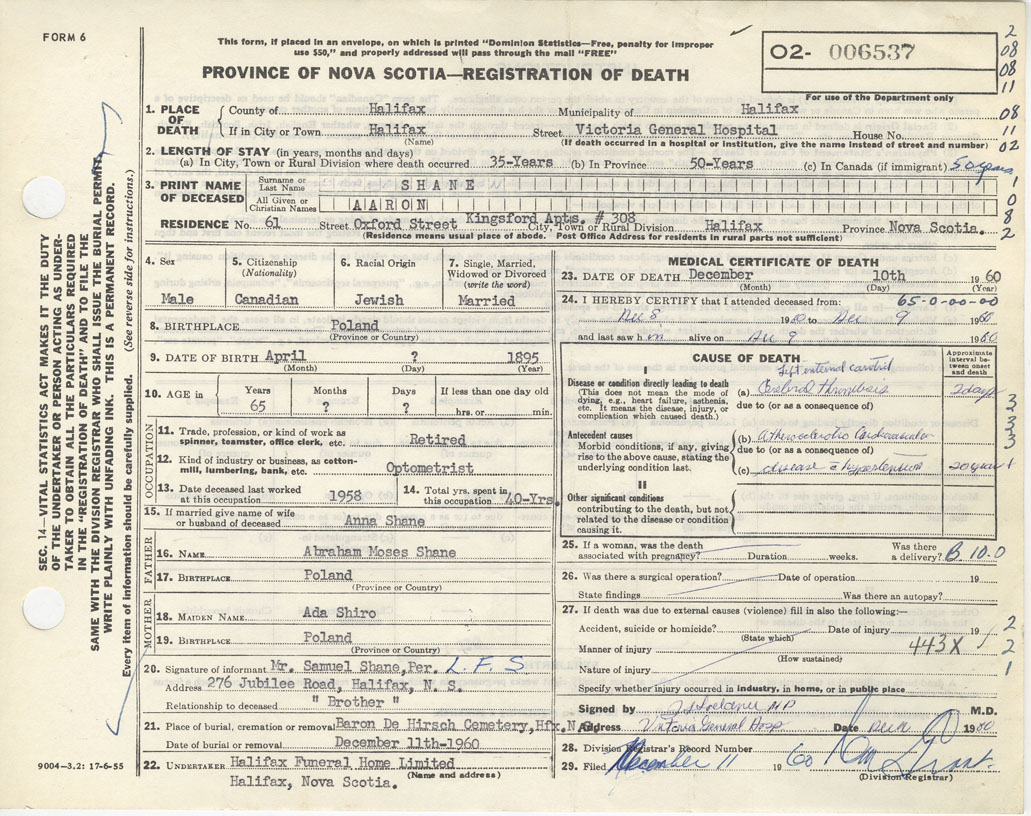 FORM 6
This form, if placed in an envelope, on which is printed "Dominion Statistics—Free, penalty for improper
use $50," and properly addressed will pass through the mail "FREE"
PROVINCE OF NOVA SCOTIA—REGISTRATION OF DEATH
02- 006537
For use of the Department only
2
08
08
11
08
11
02
1
0
8
2
SEC. 14—VITAL STATISTICS ACT MAKES IT THE DUTY
OF THE UNDERTAKER OR PERSON ACTING AS UNDER-
TAKER TO OBTAIN ALL THE PARTICULARS REQUIRED
IN THE "REGISTRATION OF DEATH" AND TO FILE THE
SAME WITH THE DIVISION REGISTRAR WHO SHALL ISSUE THE BURIAL PERMIT.
WRITE PLAINLY WITH UNFADING INK. THIS IS A PERMANENT RECORD.
Every item of information should be carefully supplied. (See reverse side for instructions.)
1. PLACE OF DEATH
County of Halifax Municipality of Halifax
If in City or Town Halifax Street Victoria General Hospital House No.
(Name) (If death occurred in a hospital or institution, give the name instead of street and number)
2. LENGTH OF STAY (in years, months and days)
(a) In City, Town or Rural Division where death occurred 35-Years (b) In Province 50-Years (c) In Canada (if immigrant) 50 years
3. PRINT NAME OF DECEASED
Surname or Last Name SHANE
All Given or Christian Names AARON
RESIDENCE No. 61 Street Oxford Street Kingsford Apts. # 308 City, Town or Rural Division Halifax Province Nova Scotia.
(Residence means usual place of abode. Post Office Address for residents in rural parts not sufficient)
4. Sex Male
5. Citizenship (Nationality) Canadian
6. Racial Origin Jewish
7. Single, Married, Widowed or Divorced (write the word) Married
8. BIRTHPLACE Poland
(Province or Country)
9. DATE OF BIRTH April ? 1895
(Month) (Day) (Year)
10. AGE in Years 65 Months ? Days ? If less than one day old
hrs. or min.
OCCUPATION
11. Trade, profession, or kind of work as
spinner, teamster, office clerk, etc. Retired
12. Kind of industry or business, as cotton-
mill, lumbering, bank, etc. Optometrist
13. Date deceased last worked
at this occupation 1958
14. Total yrs. spent in
this occupation 40-Yrs.
15. If married give name of wife
or husband of deceased Anna Shane
FATHER
16. NAME Abraham Moses Shane
17. BIRTHPLACE Poland
(Province or Country)
MOTHER
18. MAIDEN NAME Ada Shiro
19. BIRTHPLACE Poland
(Province or Country)
20. Signature of informant Mr. Samuel Shane, Per. L.F.S
Address 276 Jubilee Road, Halifax, N. S.
Relationship to deceased " Brother "
21. Place of burial, cremation or removal Baron De Hirsch Cemetery, Hfx. N.S.
Date of burial or removal December 11th-1960
22. UNDERTAKER Halifax Funeral Home Limited
(Name and address)
Halifax, Nova Scotia.
9004-3.2: 17-6-55
MEDICAL CERTIFICATE OF DEATH
23. DATE OF DEATH December 10th 1960
(Month) (Day) (Year)
24. I HEREBY CERTIFY that I attended deceased from: 65-0-00-00
Dec 8 1960 to Dec 9 1960
and last saw him alive on Dec 9 1960
CAUSE OF DEATH
Approximate interval between onset and death
I
Disease or condition directly leading to death
(This does not mean the mode of
dying, e.g., heart failure, asthenia,
etc. It means the disease, injury, or
complication which caused death.)
left external carotid
(a) Cerebral Thrombosis 2 days
due to (or as a consequence of)
Antecedent causes
Morbid conditions, if any, giving
rise to the above cause, stating the
underlying condition last.
(b) Atherosclerotic Cardiovascular
due to (or as a consequence of)
(c) disease c̄ hypertension 20 years +
II
Other significant conditions
contributing to the death, but not
related to the disease or condition
causing it.
3
3
3
3
25. If a woman, was the death
associated with pregnancy? Duration weeks. Was there
a delivery? B.10.0
26. Was there a surgical operation? Date of operation 19
State findings Was there an autopsy?
27. If death was due to external causes (violence) fill in also the following:—
Accident, suicide or homicide? Date of injury 19
(State which)
Manner of injury 443X
(How sustained)
Nature of injury
2
2
1
Specify whether injury occurred in industry, in home, or in public place
Signed by M.D.
Address Victoria General Hosp Date 1960
28. Division Registrar's Record Number
29. Filed December 11 1960
(Division Registrar)